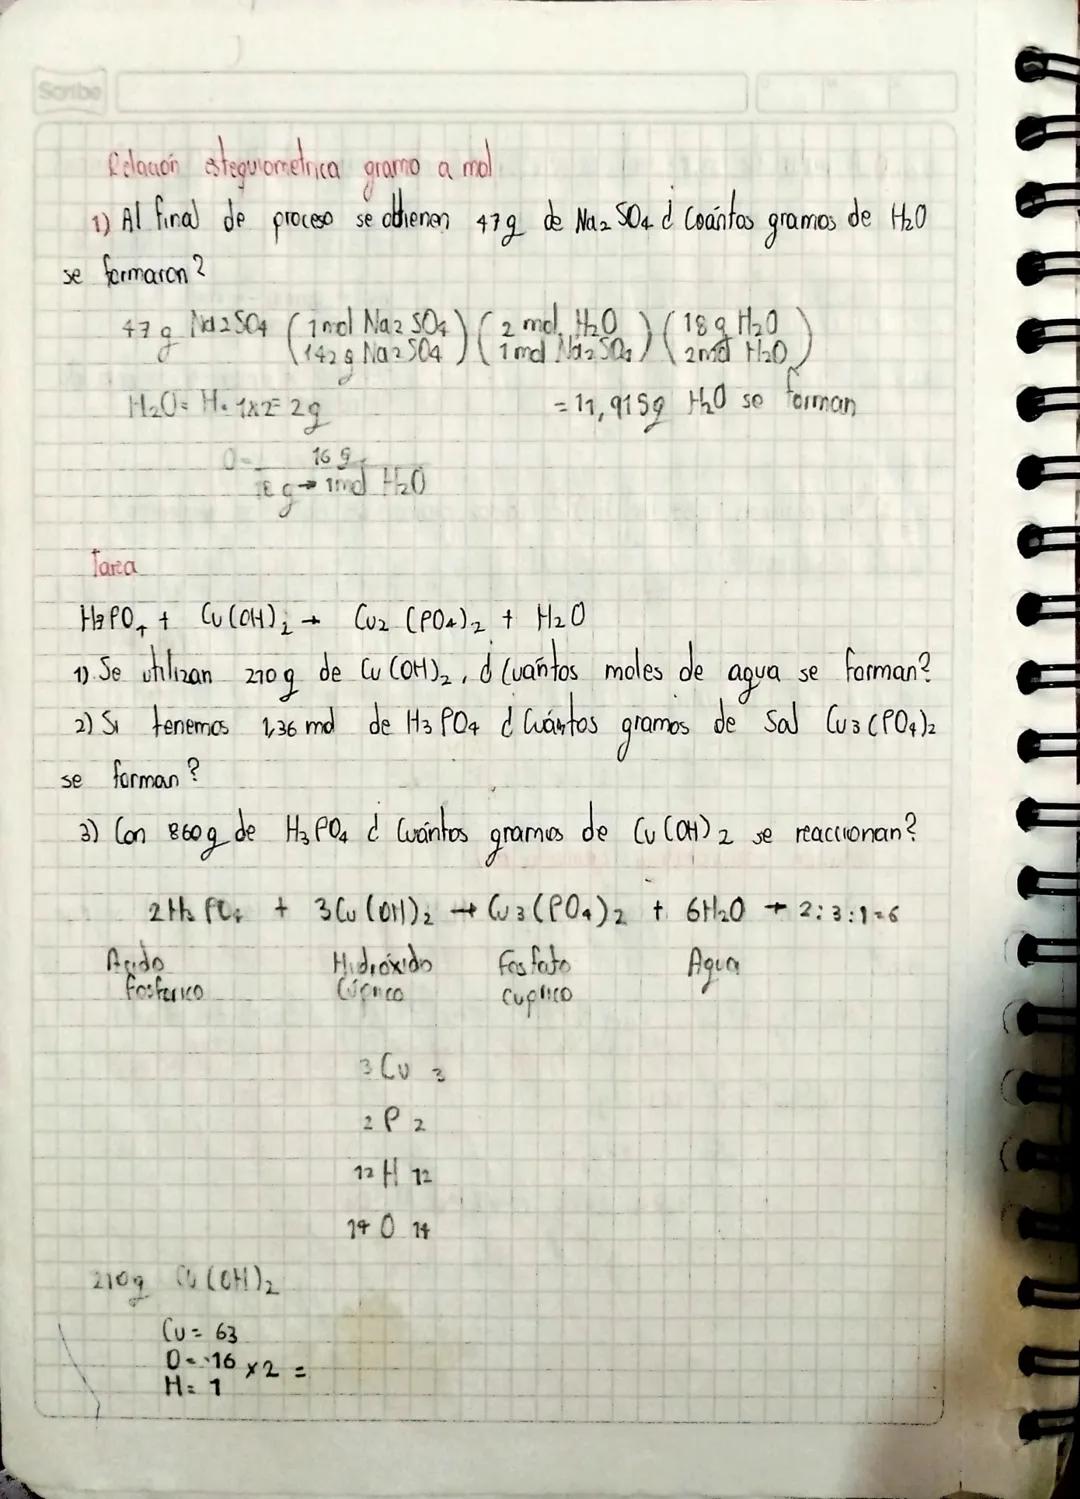 Scribe
Relación estequiometrica gramo a mol
1) Al final de proceso se obtienen 47g de Na2SO4 ¿Cuántos gramos de H2O
se formaron?
47g Na2SO4 (1mol Na2SO4 / 142g Na2SO4) (2 mol H2O / 1mol Na2SO4) (18g H2O / 2mol H2O)
H2O= H= 1x2= 2g = 11,915g H2O se forman
O= 16 g
18 g → 1mol H2O
Tarea
H3PO4 + Cu(OH)2 → Cu2 (PO4)2 + H2O
1) Se utilizan 210g de Cu(OH)2, ¿Cuántos moles de agua se forman?
2) Si tenemos 1,36 mol de H3PO4 ¿Cuántos gramos de Sal Cu3(PO4)2
se forman?
3) Con 860g de H3PO4 ¿Cuántos gramos de Cu(OH)2 se reaccionan?
2H3PO4 + 3Cu(OH)2 → Cu3(PO4)2 + 6H2O → 2:3:1=6
Acido Hidróxido Fosfato Agua
fosforico Cúprico cuprico
3 Cu 3
2 P 2
12 H 12
14 O 14
210g Cu(OH)2
Cu= 63
O= 16 x2 =
H= 1